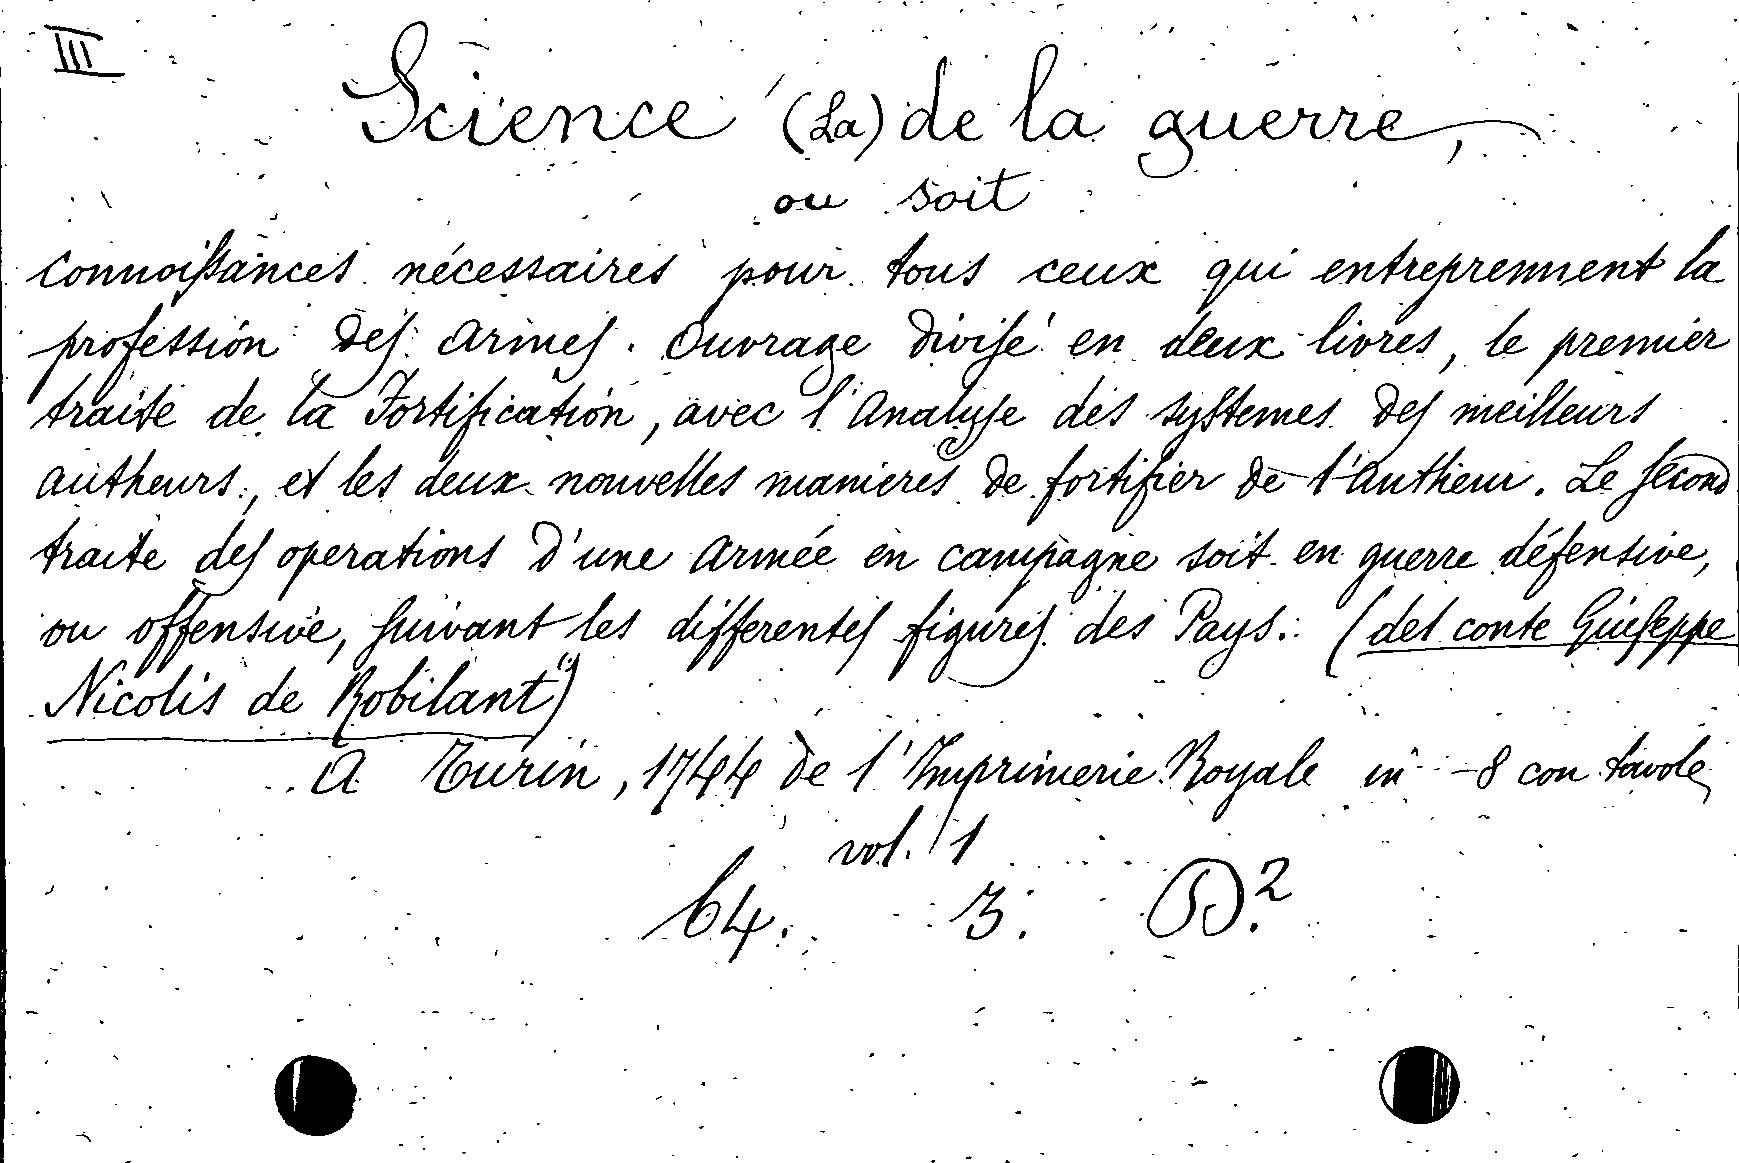 III
Science (La) de la guerre,
ou soit
connoissances nécessaires pour tous ceux qui entreprennent la
profession des armes. Ouvrage divisé en deux livres, le premier
traite de la Fortification, avec l'Analyse des systemes des meilleurs
autheurs, et les deux nouvelles manieres de fortifier de l'Autheur. Le second
traite des operations d'une Armée en campagne soit en guerre défensive,
ou offensive, suivant les differentes figures des Pays. (del conte Giuseppe
Nicolis de Robilant)
A Turin, 1744 de l'Imprimerie Royale in-8 con tavole
vol. 1
64. 3. D.²